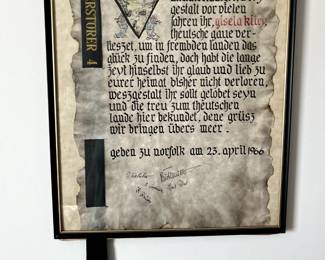 gestalt vor vielen
jahren ihr, gisela kiley,
theutsche gaue ver-
lieszet, um in frembden landen das
glück zu finden, doch habt die lange
zeyt hinselbst ihr glaub und lieb zu
eurer heimat bisher nicht verloren,
weszgestalt ihr sollt gelobet seyn
und die treu zum theutschen
lande hier bekundet, dene grüsz
wir bringen übers meer.
geben zu norfolk am 23. april 1966
ERSTORER 4